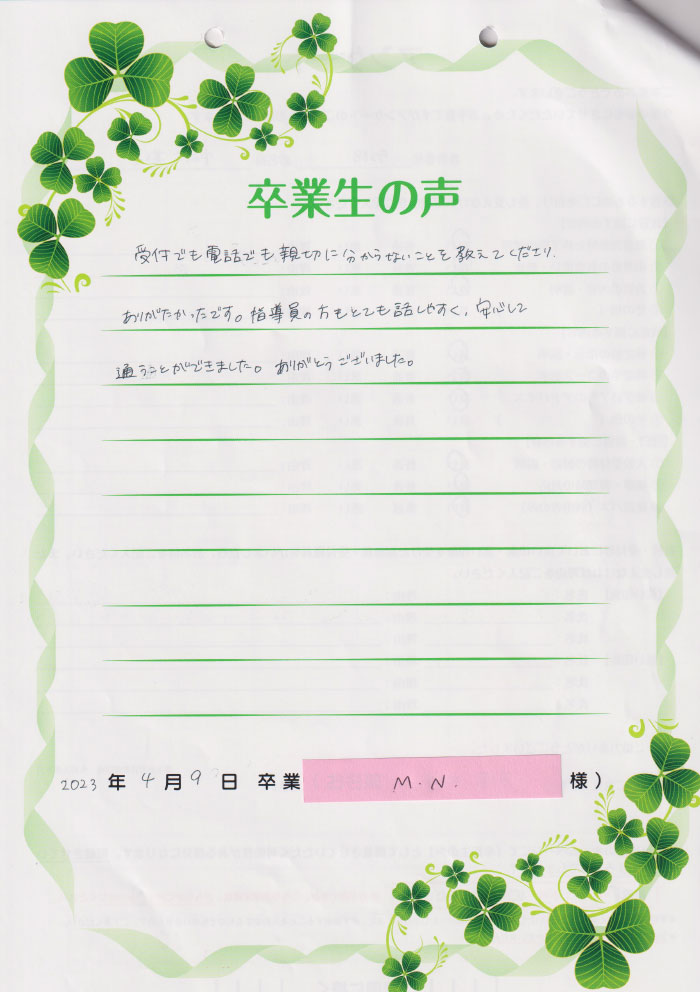 卒業生の声
受付でも電話でも親切に分からないことを教えてくださり、
ありがたかったです。指導員の方もとても話しやすく、安心して
通うことができました。ありがとうございました。
2023年4月9日 卒業 M.N. 様)